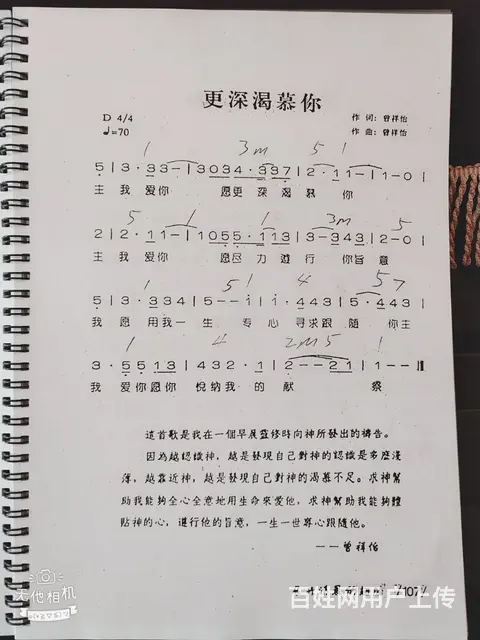 更深渴慕你
D 4/4
作 词: 曾祥怡
♩=70
作 曲: 曾祥怡
1 3m 5 1
5 | 3 · 3 3 - | 3 0 3 4 · 3 3 7 | 2 · 1 1 - | 1 - 0 |
主 我 爱你 愿更 深 渴慕 你
5 1 1 3m 5
2 | 2 · 1 1 - | 1 0 5 5 · 1 1 3 | 3 - 3 4 3 | 2 - 0 |
主 我 爱你 愿尽 力 遵行 你旨 意
1 5 1 4 5 7
5 | 3 · 3 3 4 | 5 - - i | i · 4 4 3 | 5 · 4 4 3 |
我 愿 用我一 生 专 心 寻求跟 随 你主
1 4 2m 5 1
3 · 5 5 1 3 | 4 3 2 · 1 | 2 - - 2 1 | 1 - - ‖
我 爱你愿你 悅纳我 的 献 祭
這首歌是我在一個早晨靈修時向神所發出的禱告。
因為越認識神，越是發現自己對神的認識是多麼淺
薄，越靠近神，越是發現自己對神的渴慕不足。求神幫
助我能夠全心全意地用生命來愛他，求神幫助我能夠體
貼神的心，遵行他的旨意，一生一世專心跟隨他。
——曾祥怡
107
无他相机
百姓网用户上传